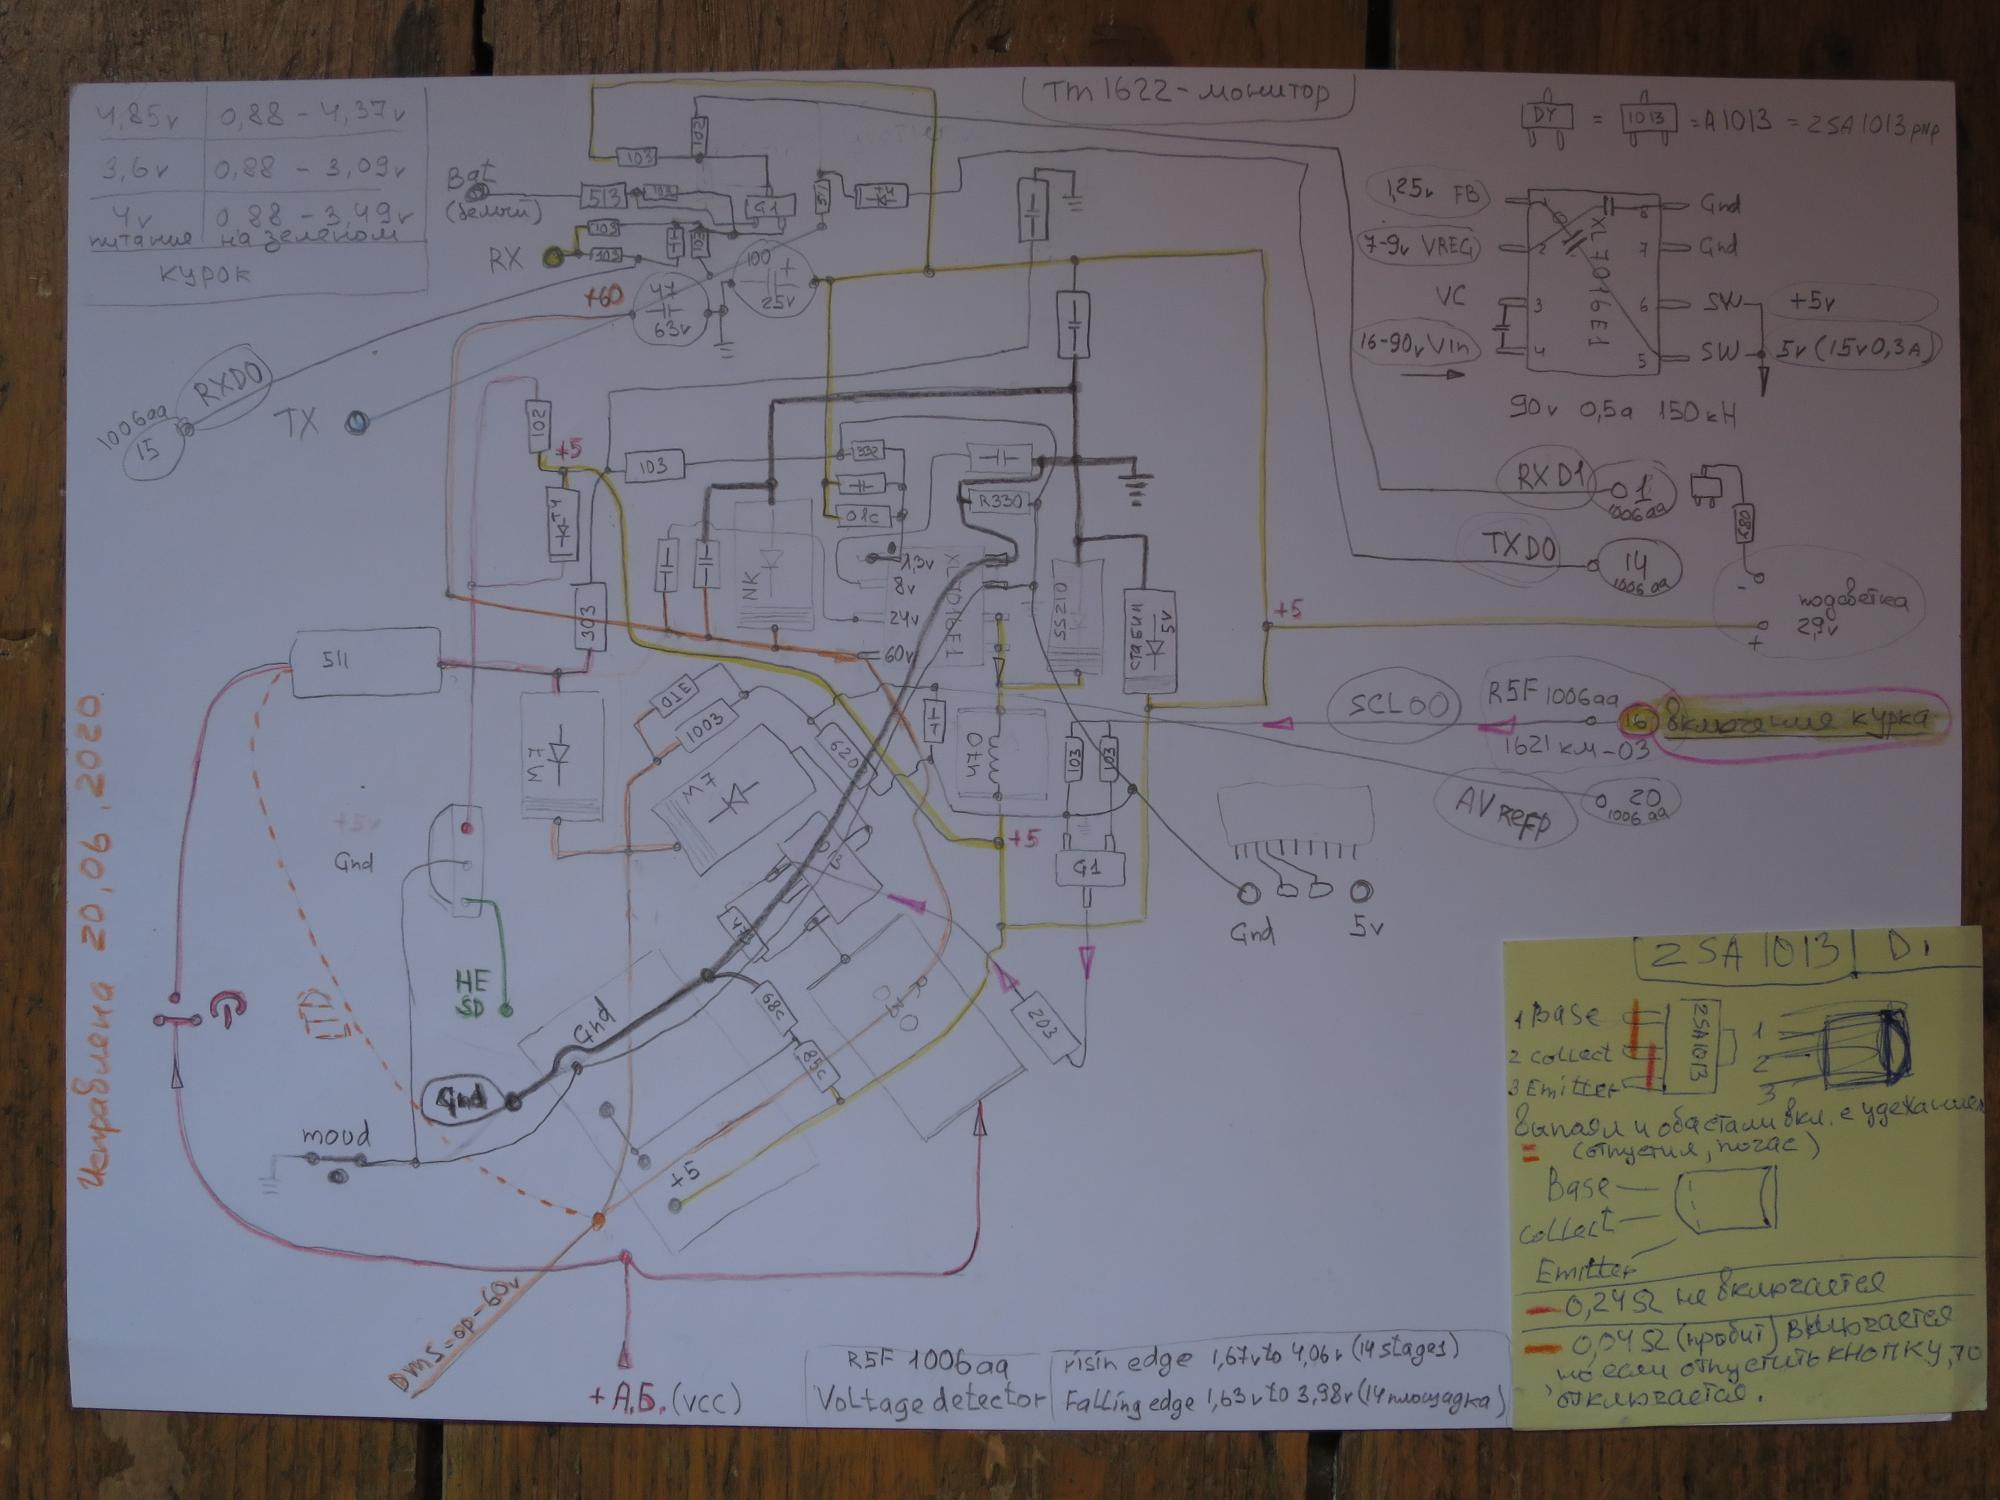 4,85v 0,88 - 4,37v
3,6v 0,88 - 3,09v
4v 0,88 - 3,49v
питание на зеленом
курок
TM1622-монитор
Bat
(белый)
RX
513
103
102
103
103
G1
511
T4
100
25v
+60
47
63v
DY = 1013 = A1013 = 2SA1013 pnp
1,25v FB
7-9v VREG
VC
16-90v Vin
1
2
3
4
XL7016E1
8
7
6
5
Gnd
Gnd
SW
SW
+5v
5v (15v 0,3A)
90v 0,5a 150кН
RXD0
1006aa
15
TX
102
+5
T4
103
332
01c
R330
1,3v
8v
24v
60v
XL7016E1
NK
SS210
стабил
5v
303
511
M7
01E
1003
M7
620
470
103
103
+5
G1
RXD1
1
1006aa
TXD0
14
1006aa
подсветка
2,9v
-
+
+5
SCL00
R5F 1006aa
1621 км-03
16
включения курка
AVrefp
20
1006aa
Gnd
5v
+5v
Gnd
HE
SD
68c
85c
203
Gnd
Gnd
moud
+5
Исправлена 20,06,2020
DMS=op-60v
+А.Б. (vcc)
R5F 1006aa
Voltage detector
risin edge 1,67v to 4,06v (14 stages)
Falling edge 1,63v to 3,98v (14 площадка)
2SA 1013 D1
1 Base
2 collect
3 Emitter
2SA1013
1
2
3
(отпустил, погас)
Base
collect
Emitter
0,24Ω не включается
0,04Ω (пробит) включается
но если отпустить кнопку, то
отключается.